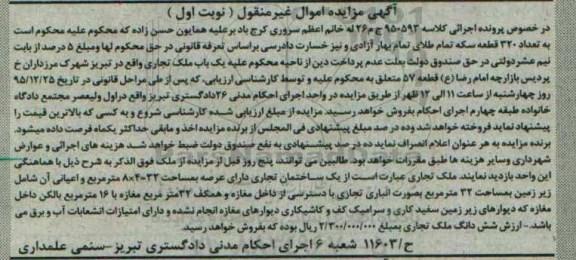 آگهی مزایده اموال غیرمنقول ( نوبت اول )
در خصوص پرونده اجرائی کلاسه ۹۵۰۵۹۳ ج م۲۶ له خانم اعظم سروری کرج باد برعلیه همایون حسن زاده که محکوم علیه محکوم است
به تعداد ۳۲۰ قطعه سکه تمام طلای تمام بهار آزادی و نیز خسارت دادرسی براساس تعرفه قانونی در حق محکوم لها ومبلغ ۵ درصد از بابت
نیم عشر دولتی در حق صندوق دولت بعلت عدم پرداخت دین از ناحیه محکوم علیه یک باب ملک تجاری واقع در تبریز شهرک مرزداران خ
پردیس بازارچه امام رضا (ع) قطعه ۵۷ متعلق به محکوم علیه و توسط کارشناسی ارزیابی، که پس از طی مراحل قانونی در تاریخ ۹۵/۱۲/۲۵
روز چهارشنبه از ساعت ۱۱ الی ۱۲ ظهر از طریق مزایده در واحد اجرای احکام مدنی ۲۶دادگستری تبریز واقع دراول ولیعصر مجتمع دادگاه
خانواده طبقه چهارم اجرای احکام بفروش خواهد رسید. مزایده از مبلغ ارزیابی شده کارشناسی شروع و به کسی که بالاترین قیمت را
پیشنهاد نماید فروخته خواهد شد وده در صد مبلغ پیشنهادی فی المجلس از برنده مزایده اخذ و مابقی حداکثر یکماه فرصت داده میشود.
برنده مزایده به هر عنوان اعلام انصراف نماید ده در صد پیشنهادی به نفع صندوق دولت ضبط خواهد شد هزینه های اجرائی و عوارض
شهرداری وسایر هزینه ها طبق مقررات خواهد بود. طالبین می توانند، پنج روز قبل از مزایده از ملک فوق الذکر به شرح ذیل با هماهنگی
این واحد بازدید نمایند. ملک تجاری عبارت است از یک ساختمان تجاری دارای عرصه بمساحت ۳۲=۴×۸ مترمربع و اعیانی آن شامل
زیر زمین بمساحت ۳۲ مترمربع بصورت انباری تجاری با دسترسی از داخل مغازه و همکف ۳۲متر مربع مغازه با ۱۶ مترمربع بالکن داخل
مغازه که دیوارهای زیر زمین سفید کاری و سرامیک کف و کاشیکاری دیوارهای مغازه انجام نشده و دارای امتیازات انشعابات آب و برق می
باشد. - ارزش شش دانگ ملک تجاری بمبلغ ۲/۳۰۰/۰۰۰/۰۰۰ ریال بوده که بفروش خواهد رسید.
ح/۱۱۶۰۳ شعبه ۶ اجرای احکام مدنی دادگستری تبریز-سنمی علمداری